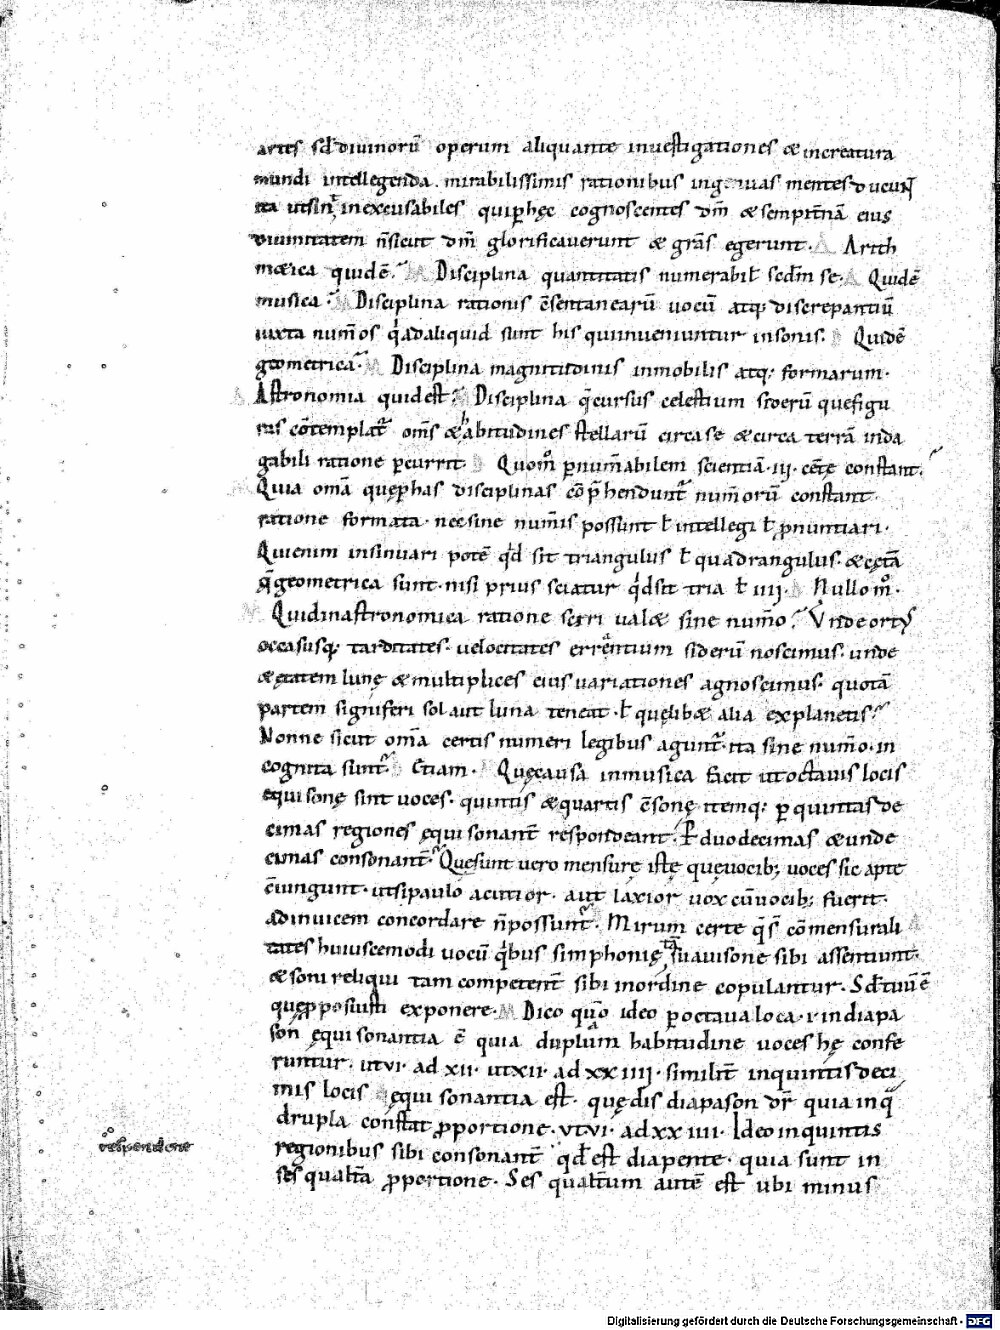 artes sđ diuinorū operum aliquante inuestigationes & increatura
mundi intellegenda. mirabilissimis rationibus ingenuas mentes ducunt
ita utsint inexcusabiles quip hęc cognoscentes dm̄ & sempit̄nā eius
diuinitatem n̄ sicut dm̄ glorificauerunt & grās egerunt. Arith
m&ica quidē. M Disciplina quantitatis numerabil' sedm se. Δ Quidē
musica. M Disciplina rationis c̄sentanearū uocū atq; discrepantiū
iuxta num̄os q̄ ad aliquid sunt his qui inueniuntur insonis. D Quidē
geometrica. M Disciplina magnitudinis inmobilis atq; formarum.
Δ Astronomia quid est. M Disciplina q̄ cursus celestium siderū que figu
ras cōtemplat̄ om̄s & habitudines stellarū circa se & circa terrā inda
gabili ratione p̄currit. D Quom̊ p num̄abilem scientiā .iii. cęt̄ę constant.
M Quia om̄a quę p has disciplinas cōp̄hendunt̄ num̄orū constant
ratione formata. nec sine num̄is possunt ł intellegi ł pronuntiari.
Qui enim insinuari potē qđ sit triangulus ł quadrangulus. & cęt̄a
q̄ geometrica sunt. nisi prius sciatur qđ sit tria ł iiii. D Nullo m̊.
M Quid in astronomica ratione sciri ual& sine num̄o. Vnde ortꝰ
occasusq; tarditates. uelocitates errantium siderū noscimus. unde
& ętatem lunę & multiplices eius uariationes agnoscimus. quotā
partem signiferi sol aut luna teneat. ł quęlib& alia explanetis.
Nonne sicut om̄a certis numeri legibus agunt̄. ita sine num̄o. in
cognita sunt̄. D Etiam. Quę causa in musica facit ut octauis locis
equisonę sint uoces. quintis & quartis c̄sonę itemq; p quintas de
cimas regiones ęquisonant̄ respondeant. P duodecimas & unde
cimas consonant̄. Quę sunt uero mensurę istę quę uocib; uoces sic apte
c̄iungunt. ut si paulo acutior. aut laxior uox cū uocib; fuerit.
adinuicem concordare n̄ possunt̄. Mirum certe q̄s cōmensurali
tates huiuscemodi uocū q̄bus simphonię tā suauisone sibi assentiunt.
& soni reliqui tam competent̄ sibi in ordine copulantur. Sđ tuū ē
quę pposuisti exponere. M Dico quō ideo p octaua loca. i in diapa
son ęquisonantia ē quia duplam habitudine uoces hę confe
runtur. ut vi. ad xii. ut xii. ad xxiiii. similit̄ in quintis deci
mis locis ęquisonantia est. quę dis diapason dr̄ quia in q̄
drupla constat pportione. ut vi. ad xxiiii. Ideo in quintis
regionibus sibi consonant̄ qđ est diapente. quia sunt in
sesqualt̄a pportione. Sesqualt̄um autē est ubi minus
respondent
Digitalisierung gefördert durch die Deutsche Forschungsgemeinschaft - DFG